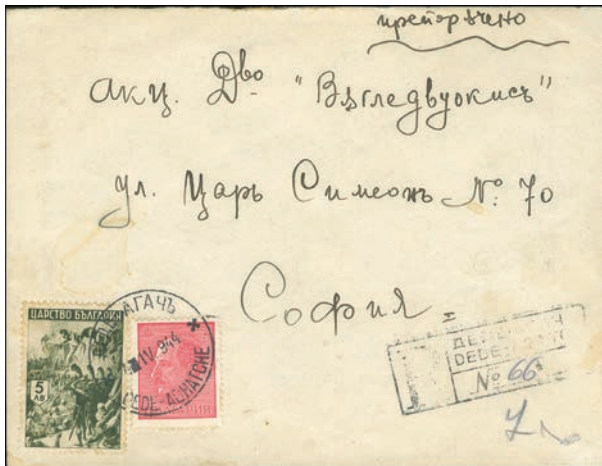 препоръчено
Акц. Д-во "Въгледвуокисъ"
ул. Царь Симеонъ № 70
София
ЦАРСТВО БЪЛГАРИЯ
5
ЛВ
АГАЧЪ
IV.944
DEDE-AGHATCHE
№ 66